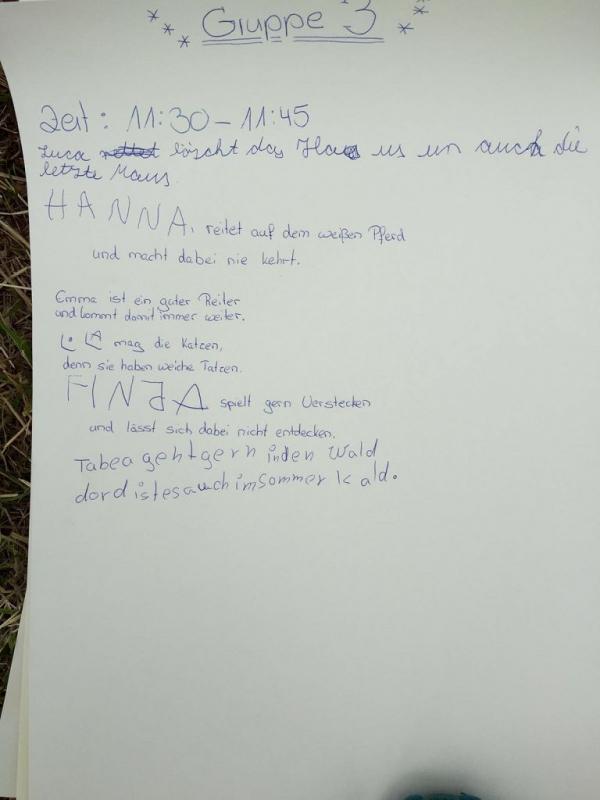 Gruppe 3
Zeit: 11:30 – 11:45
Luca löscht das Haus us un auch die
letzte Maus
HANNA, reitet auf dem weißen Pferd
und macht dabei nie kehrt.
Emma ist ein guter Reiter
und kommt damit immer weiter.
LiLA mag die Katzen,
denn sie haben weiche Tatzen.
FINJA spielt gern Verstecken
und lässt sich dabei nicht entdecken.
Tabea geht gern in den Wald
dord ist es auch im Sommer kald.